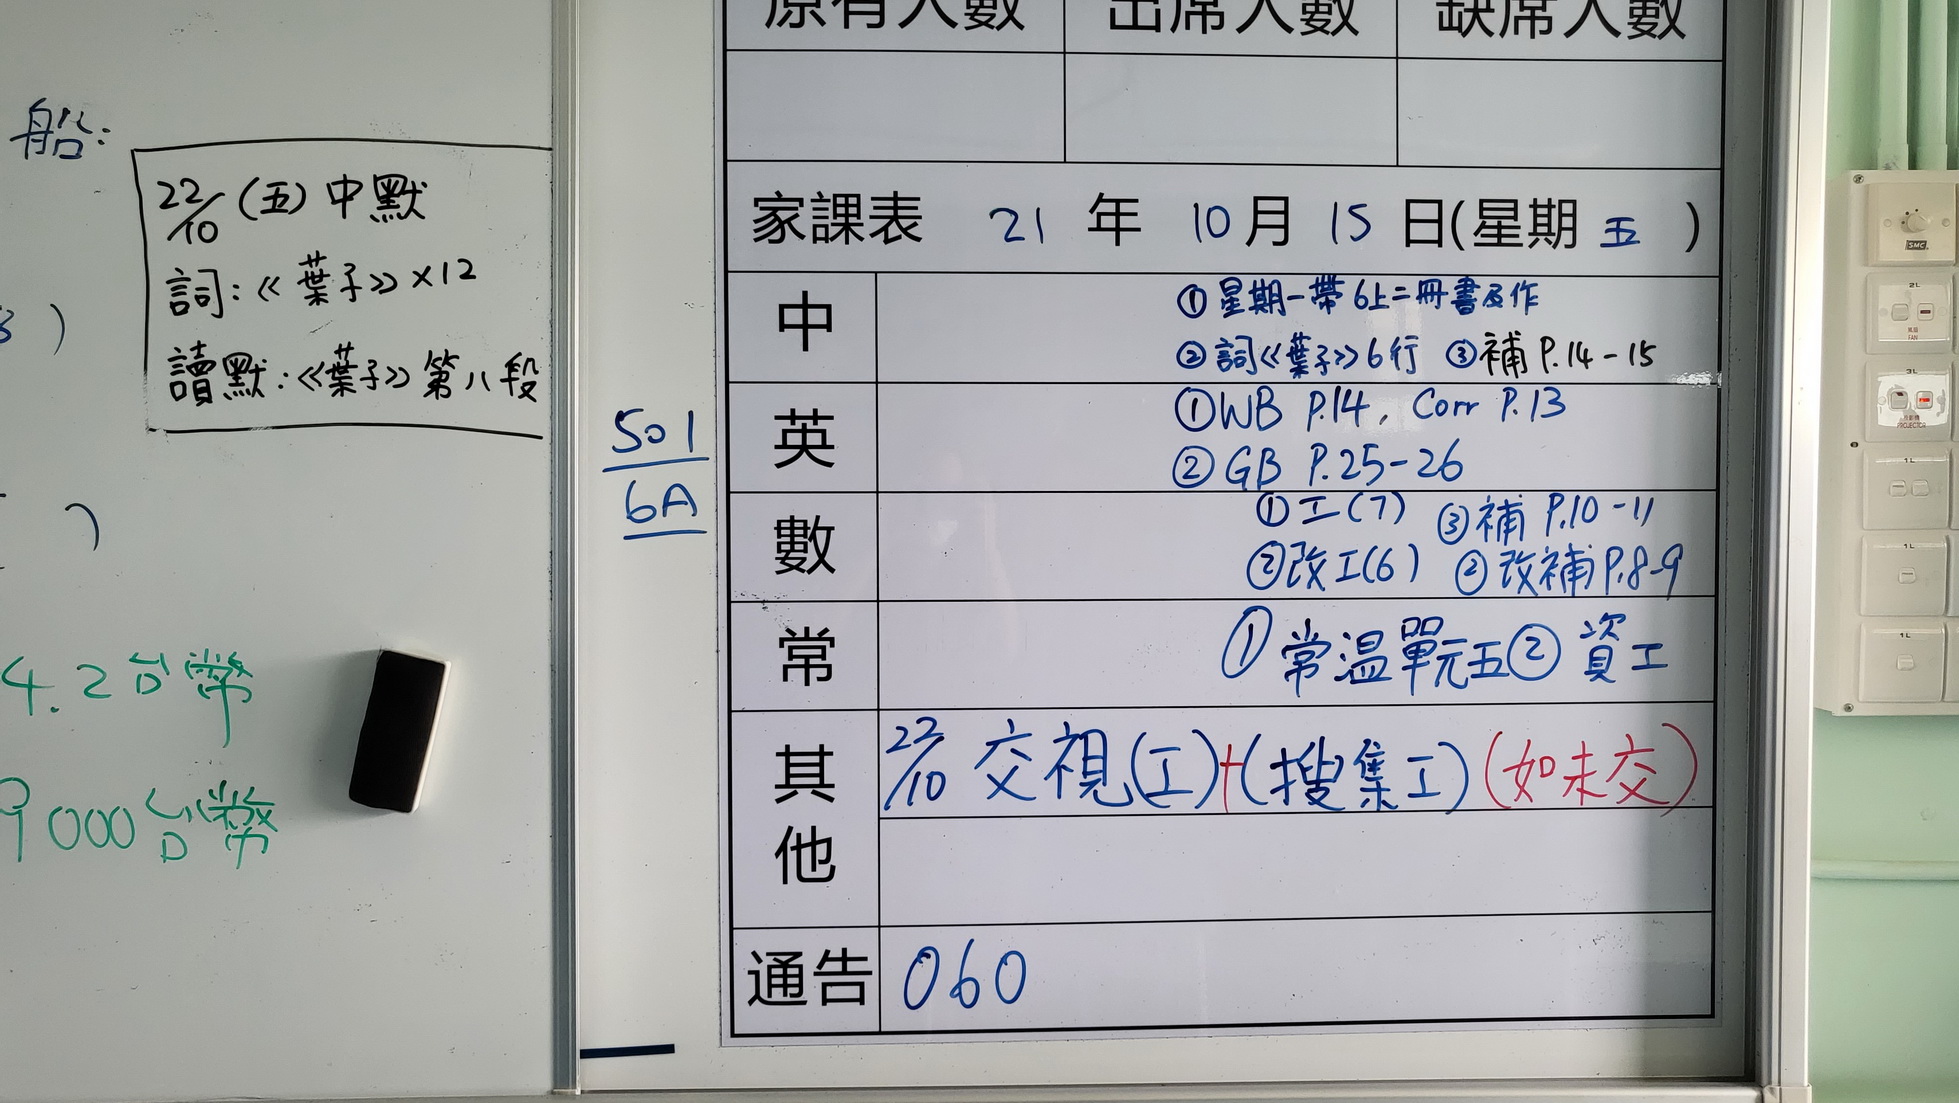 原有人數 出席人數 缺席人數
船:
22/10 (五) 中默
詞:《葉子》×12
讀默:《葉子》第八段
)
)
4.2台幣
9000台幣
501
6A
家課表 21 年 10 月 15 日(星期 五 )
中
① 星期一帶6上二冊書及作
② 詞《葉子》6行 ③補 P.14-15
英
①WB P.14, Corr P.13
②GB P.25-26
數
①工(7) ③補 P.10-11
②改工(6) ②改補P.8-9
常
①常温單元五② 資工
其他
22/10 交視(工)+(搜集工)(如未交)
通告 060
SMC
2L
FAN
3L
PROJECTOR
1L
1L
1L